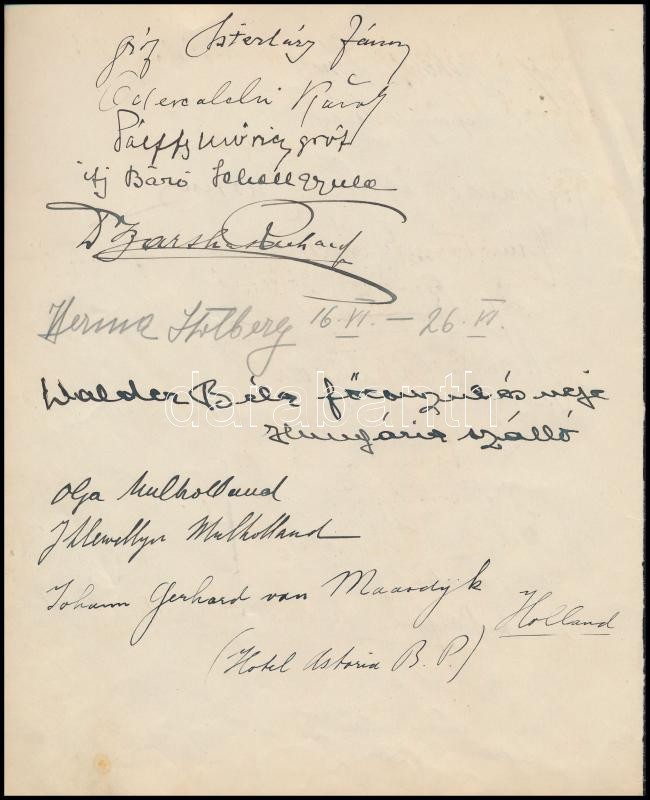 gróf Esterházy János
Odescalchi Károly
Pálffy Móric gróf
ifj Báró Schell Gyula
Dr Richard
Herma Stolberg 16. VI. – 26. VI.
darabanth
Walder Béla és neje
Hungária szálló
Olga Mulholland
J Llewellyn Mulholland
Johann Gerhard van Maasdijk
Holland
(Hotel Astoria B. P.)